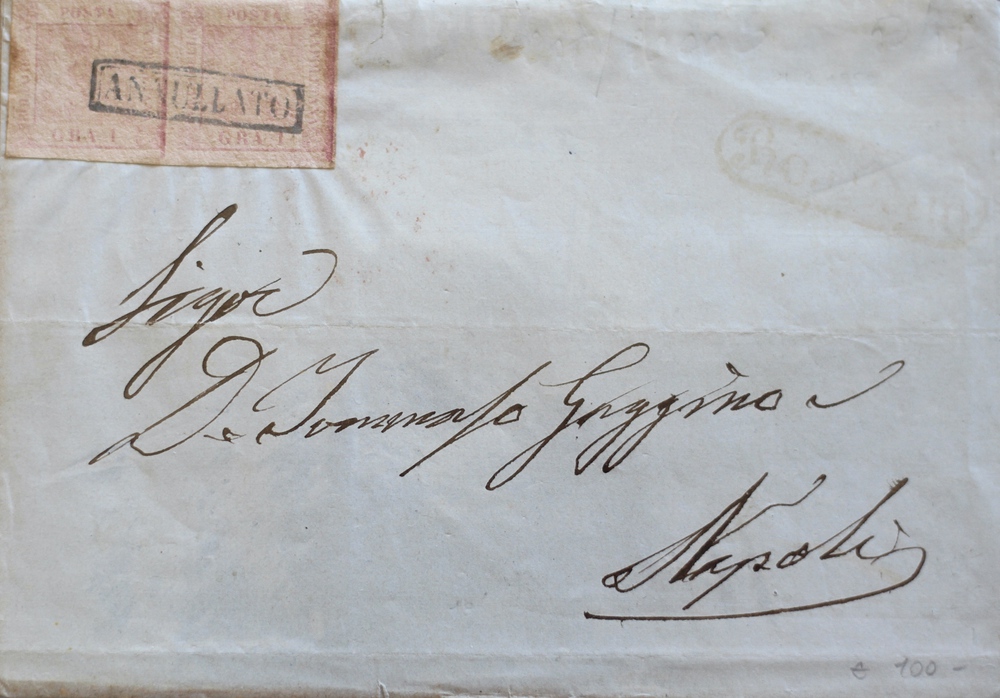 POSTA POSTA
ANNULLATO
GRA 1 GRA 1
Sigor
D. Tommaso Gaggino
Napoli
€ 100 -